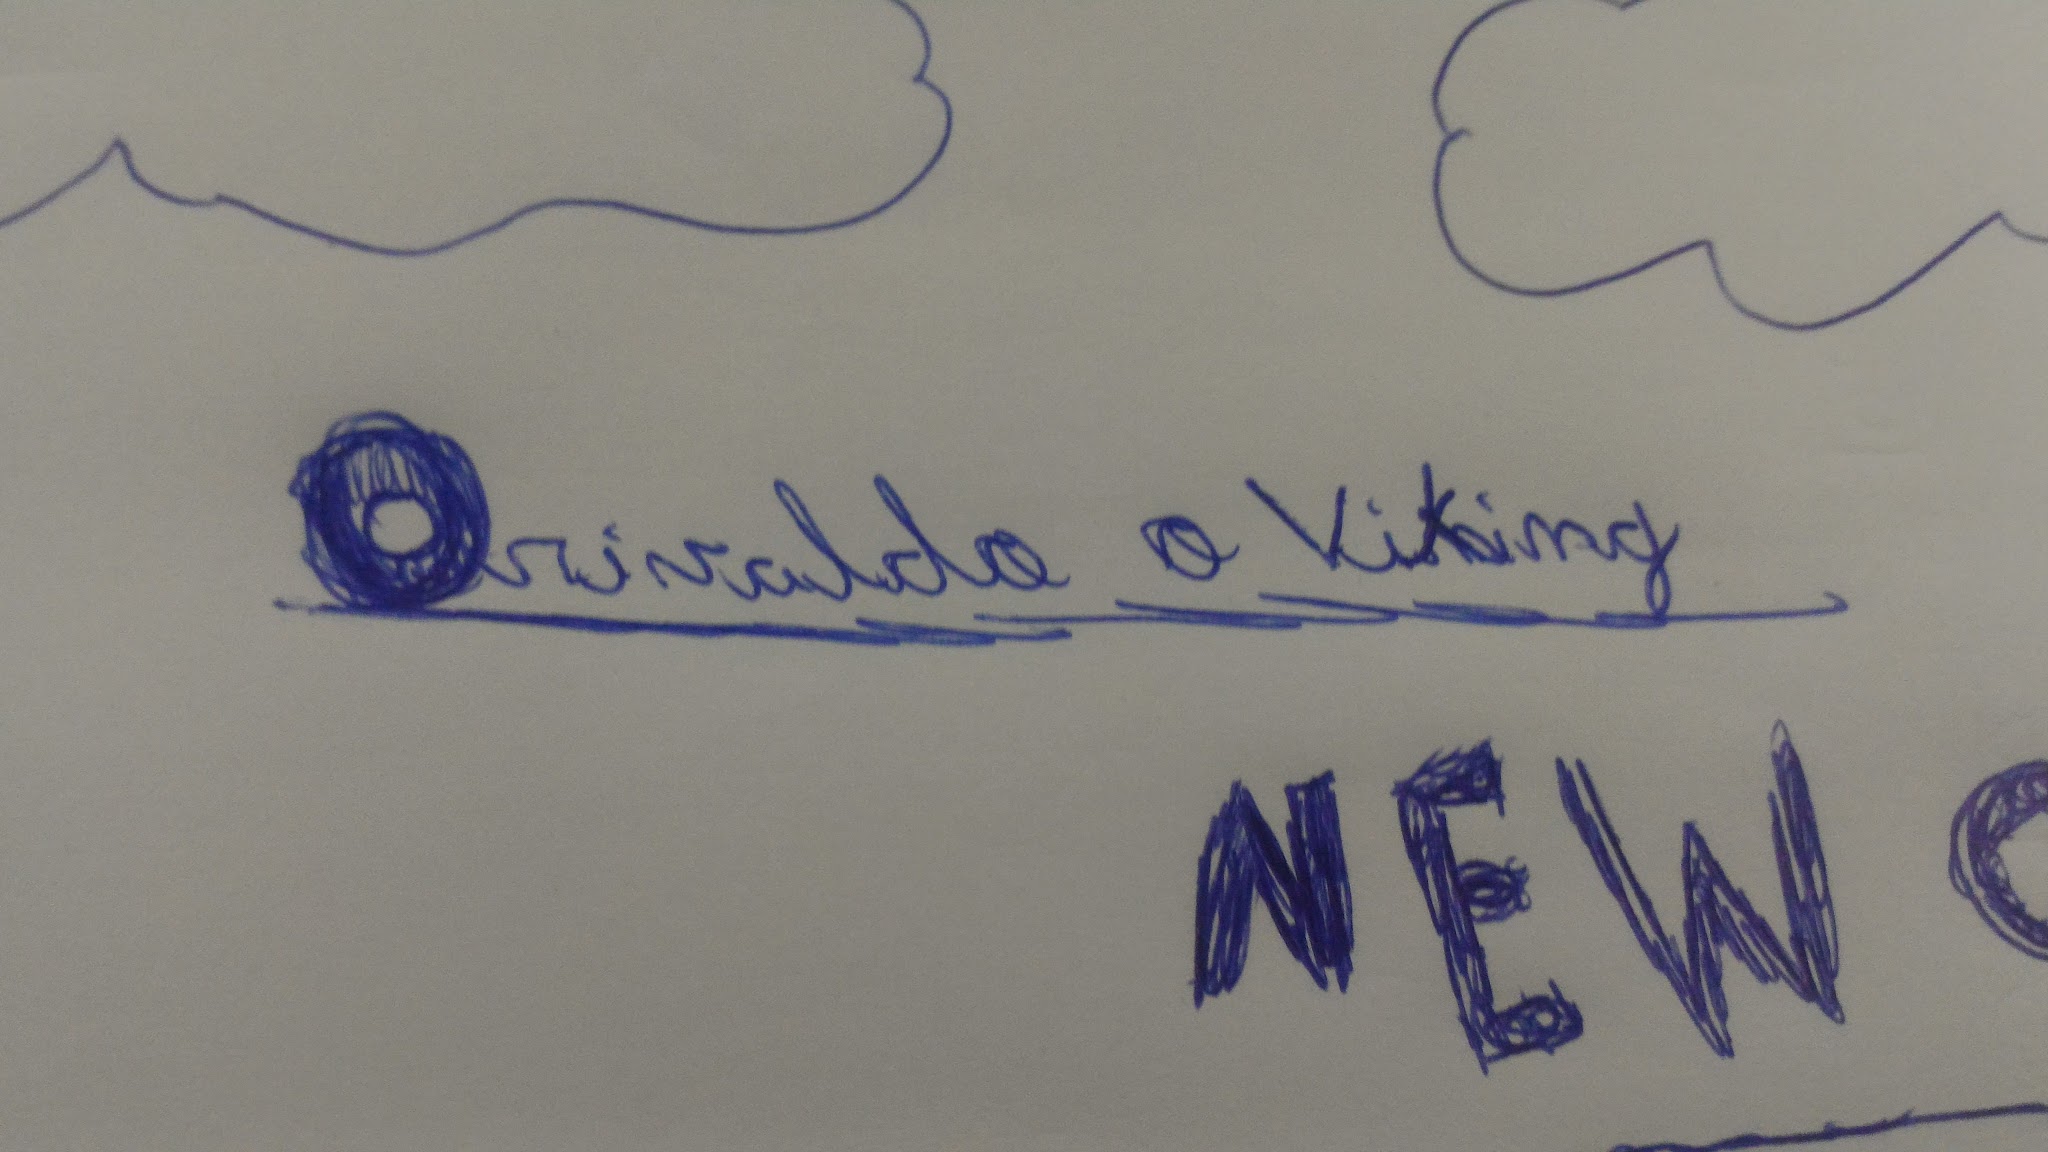 Orivaldo o Viking
NEW